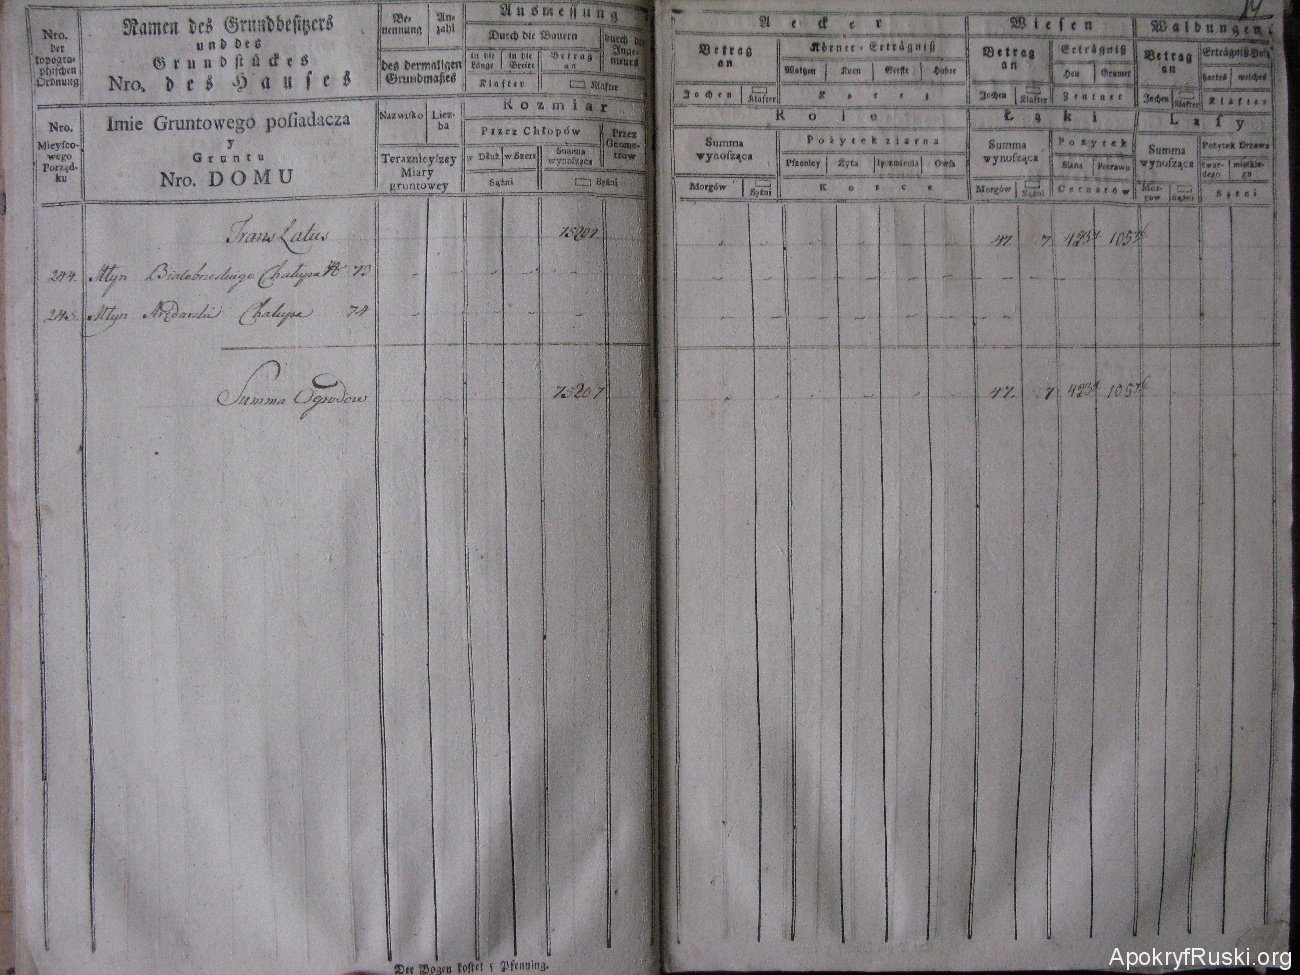 Nro. der topographischen Ordnung
Namen des Grundbesitzers
und des
Grundstückes
Nro. des Hauses
Benennung
Anzahl
des dermaligen Grundmaßes
Ausmessung
Durch die Bauern
durch die Ingenieurs
in die Länge
in die Breite
Betrag an
Klafter
Klafter
Nro. Mieyscowego Porządku
Imie Gruntowego posiadacza
y
Gruntu
Nro. DOMU
Nazwisko
Liczba
Teraznieyszey Miary gruntowey
Rozmiar
Przez Chłopów
Przez Geometrow
w Dłuż
w Szerz
Summa wynosząca
Sążni
Sążni
Aecker
Betrag an
Körner-Erträgniß
Waitzen
Korn
Gerste
Haber
Jochen
Klafter
Korez
Role
Summa wynosząca
Pożytek ziarna
Pszenicy
Żyta
Ięczmienia
Owsa
Morgów
Sążni
Korce
Wiesen
Betrag an
Erträgniß
Heu
Grumet
Jochen
Klafter
Zentner
Łąki
Summa wynosząca
Pożytek
Siana
Potrawu
Morgów
Sążni
Cetnarów
Waldungen
Betrag an
Erträgniß Holz
hartes
weiches
Jochen
Klafter
Klafter
Lasy
Summa wynosząca
Pożytek Drzewa
twardego
miętkiego
Morgow
Sążni
Sążni
Trans Latus 75207 47 7
244. Młyn Białobrzeskiego Chałupa N 73
245. Młyn Chałupa 74
Summa Ogrodow 75207 47 7
Der Bogen kostet Pfenning.
ApokryfRuski.org